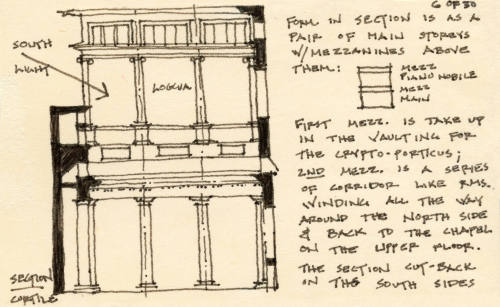 6 OF 30
FORM IN SECTION IS AS A
PAIR OF MAIN STOREYS
W/ MEZZANINES ABOVE
THEM:
MEZZ
PIANO NOBILE
MEZZ
MAIN
FIRST MEZZ. IS TAKE UP
IN THE VAULTING FOR
THE CRYPTO-PORTICUS;
2ND MEZZ. IS A SERIES
OF CORRIDOR LIKE RMS.
WINDING ALL THE WAY
AROUND THE NORTH SIDE
& BACK TO THE CHAPEL
ON THE UPPER FLOOR.
THE SECTION CUT-BACK
ON THE SOUTH SIDES
SOUTH
LIGHT
LOGGIA
SECTION
CORTILE